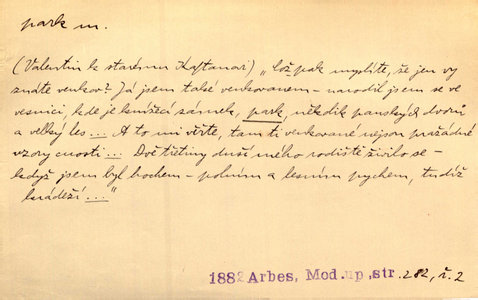 park m.
(Valentin k starému Kaftanovi) „Což pak myslíte, že jen vy
znáte venkov? Já jsem také venkovanem – narodil jsem se ve
vesnici, kde je knížecí zámek, park, několik panských dvorů
a velký les ... A to mi věřte, tam ti venkované nejsou pražádné
vzory cnosti ... Dvě třetiny duší mého rodiště živilo se –
když jsem byl hochem – polním a lesním pychem, tudíž
krádeží ..."
1882 Arbes, Mod. up., str. 282, ř. 2